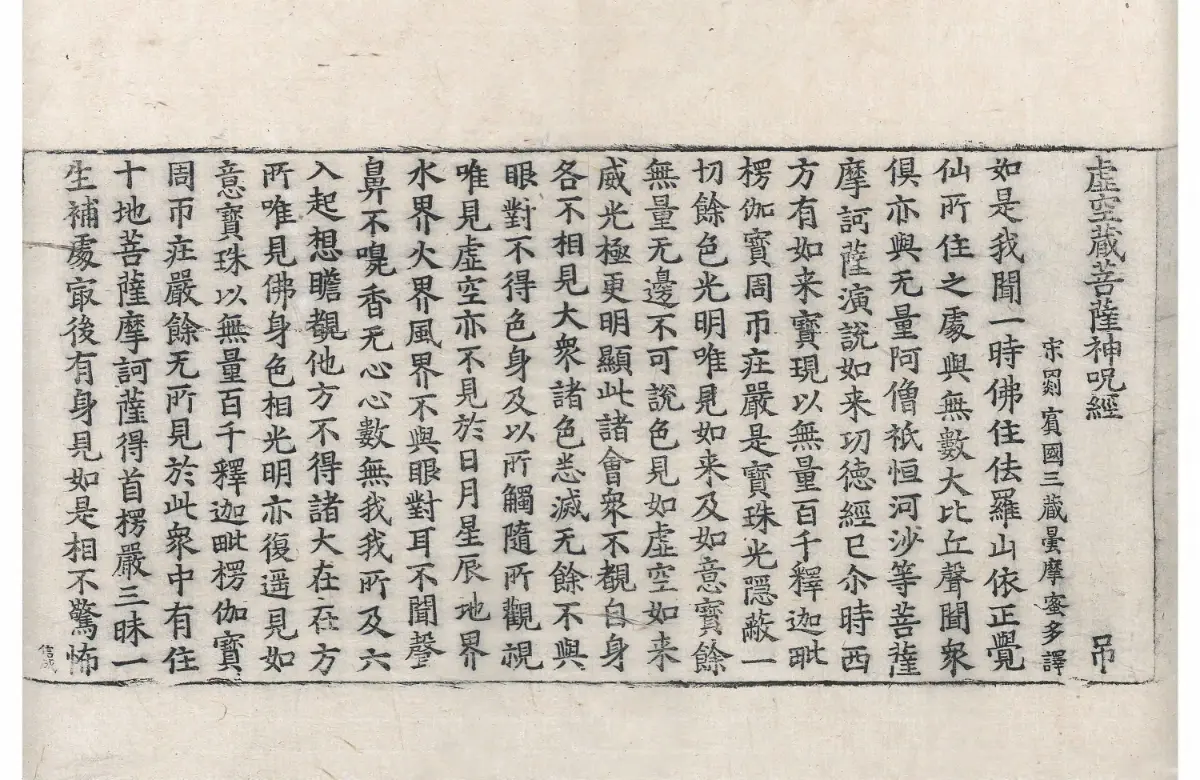 虛空藏菩薩神呪經 弔
宋罽賓國三藏曇摩蜜多譯
如是我聞一時佛住佉羅山依正覺
仙所住之處與無數大比丘聲聞衆
俱亦與无量阿僧祇恒河沙等菩薩
摩訶薩演說如来功德經已尒時西
方有如来寶現以無量百千釋迦毗
楞伽寶周帀莊嚴是寶珠光隱蔽一
切餘色光明唯見如来及如意寶餘
無量无邊不可說色見如虛空如来
威光極更明顯此諸會衆不覩自身
各不相見大衆諸色悉滅无餘不與
眼對不得色身及以所觸隨所觀視
唯見虛空亦不見於日月星辰地界
水界火界風界不與眼對耳不聞聲
鼻不嗅香无心心數無我我所及六
入起想瞻覩他方不得諸大在在方
所唯見佛身色相光明亦復遥見如
意寶珠以無量百千釋迦毗楞伽寶
周帀莊嚴餘无所見於此衆中有住
十地菩薩摩訶薩得首楞嚴三昧一
生補處㝡後有身見如是相不驚怖